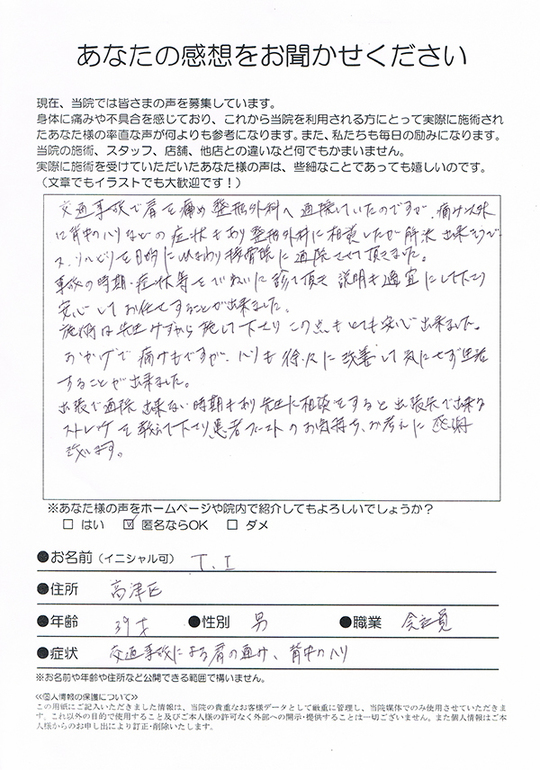 あなたの感想をお聞かせください
現在、当院では皆さまの声を募集しています。
身体に痛みや不具合を感じており、これから当院を利用される方にとって実際に施術され
たあなた様の率直な声が何よりも参考になります。また、私たちも毎日の励みになります。
当院の施術、スタッフ、店舗、他店との違いなど何でもかまいません。
実際に施術を受けていただいたあなた様の声は、些細なことであっても嬉しいのです。
（文章でもイラストでも大歓迎です！）
交通事故で肩を痛め整形外科へ通院していたのですが、痛み以外
に背中のハリなどの症状もあり整形外科に相談したが解決出来そうで
ス、リハビリを目的にひまわり接骨院に通院させて頂きました。
事故の時期・症状等をていねいに診て頂き説明も適宜にして下さり
安心してお任せすることが出来ました。
施術は先生みずから施して下さりこの点もとても安心出来ました。
おかげで痛みもですが、ハリも徐々に改善して気にせず生活
することが出来ました。
出張で通院出来ない時期もあり先生に相談をすると出張先で出来る
ストレッチを教えて下さり患者ファーストのお気持ち、お考えに感謝
致します。
※あなた様の声をホームページや院内で紹介してもよろしいでしょうか？
□ はい ☑ 匿名ならOK □ ダメ
●お名前（イニシャル可） T.I
●住所 高津区
●年齢 39才 ●性別 男 ●職業 会社員
●症状 交通事故による肩の痛み、背中のハリ
※お名前や年齢や住所など公開できる範囲で構いません。
≪個人情報の保護について≫
この用紙にご記入いただきました情報は、当院の貴重なお客様データとして厳重に管理し、当院媒体でのみ使用させていただきま
す。これ以外の目的で使用すること及びご本人様の許可なく外部への開示・提供することは一切ございません。また個人情報はご本
人様からのお申し出により訂正・削除いたします。